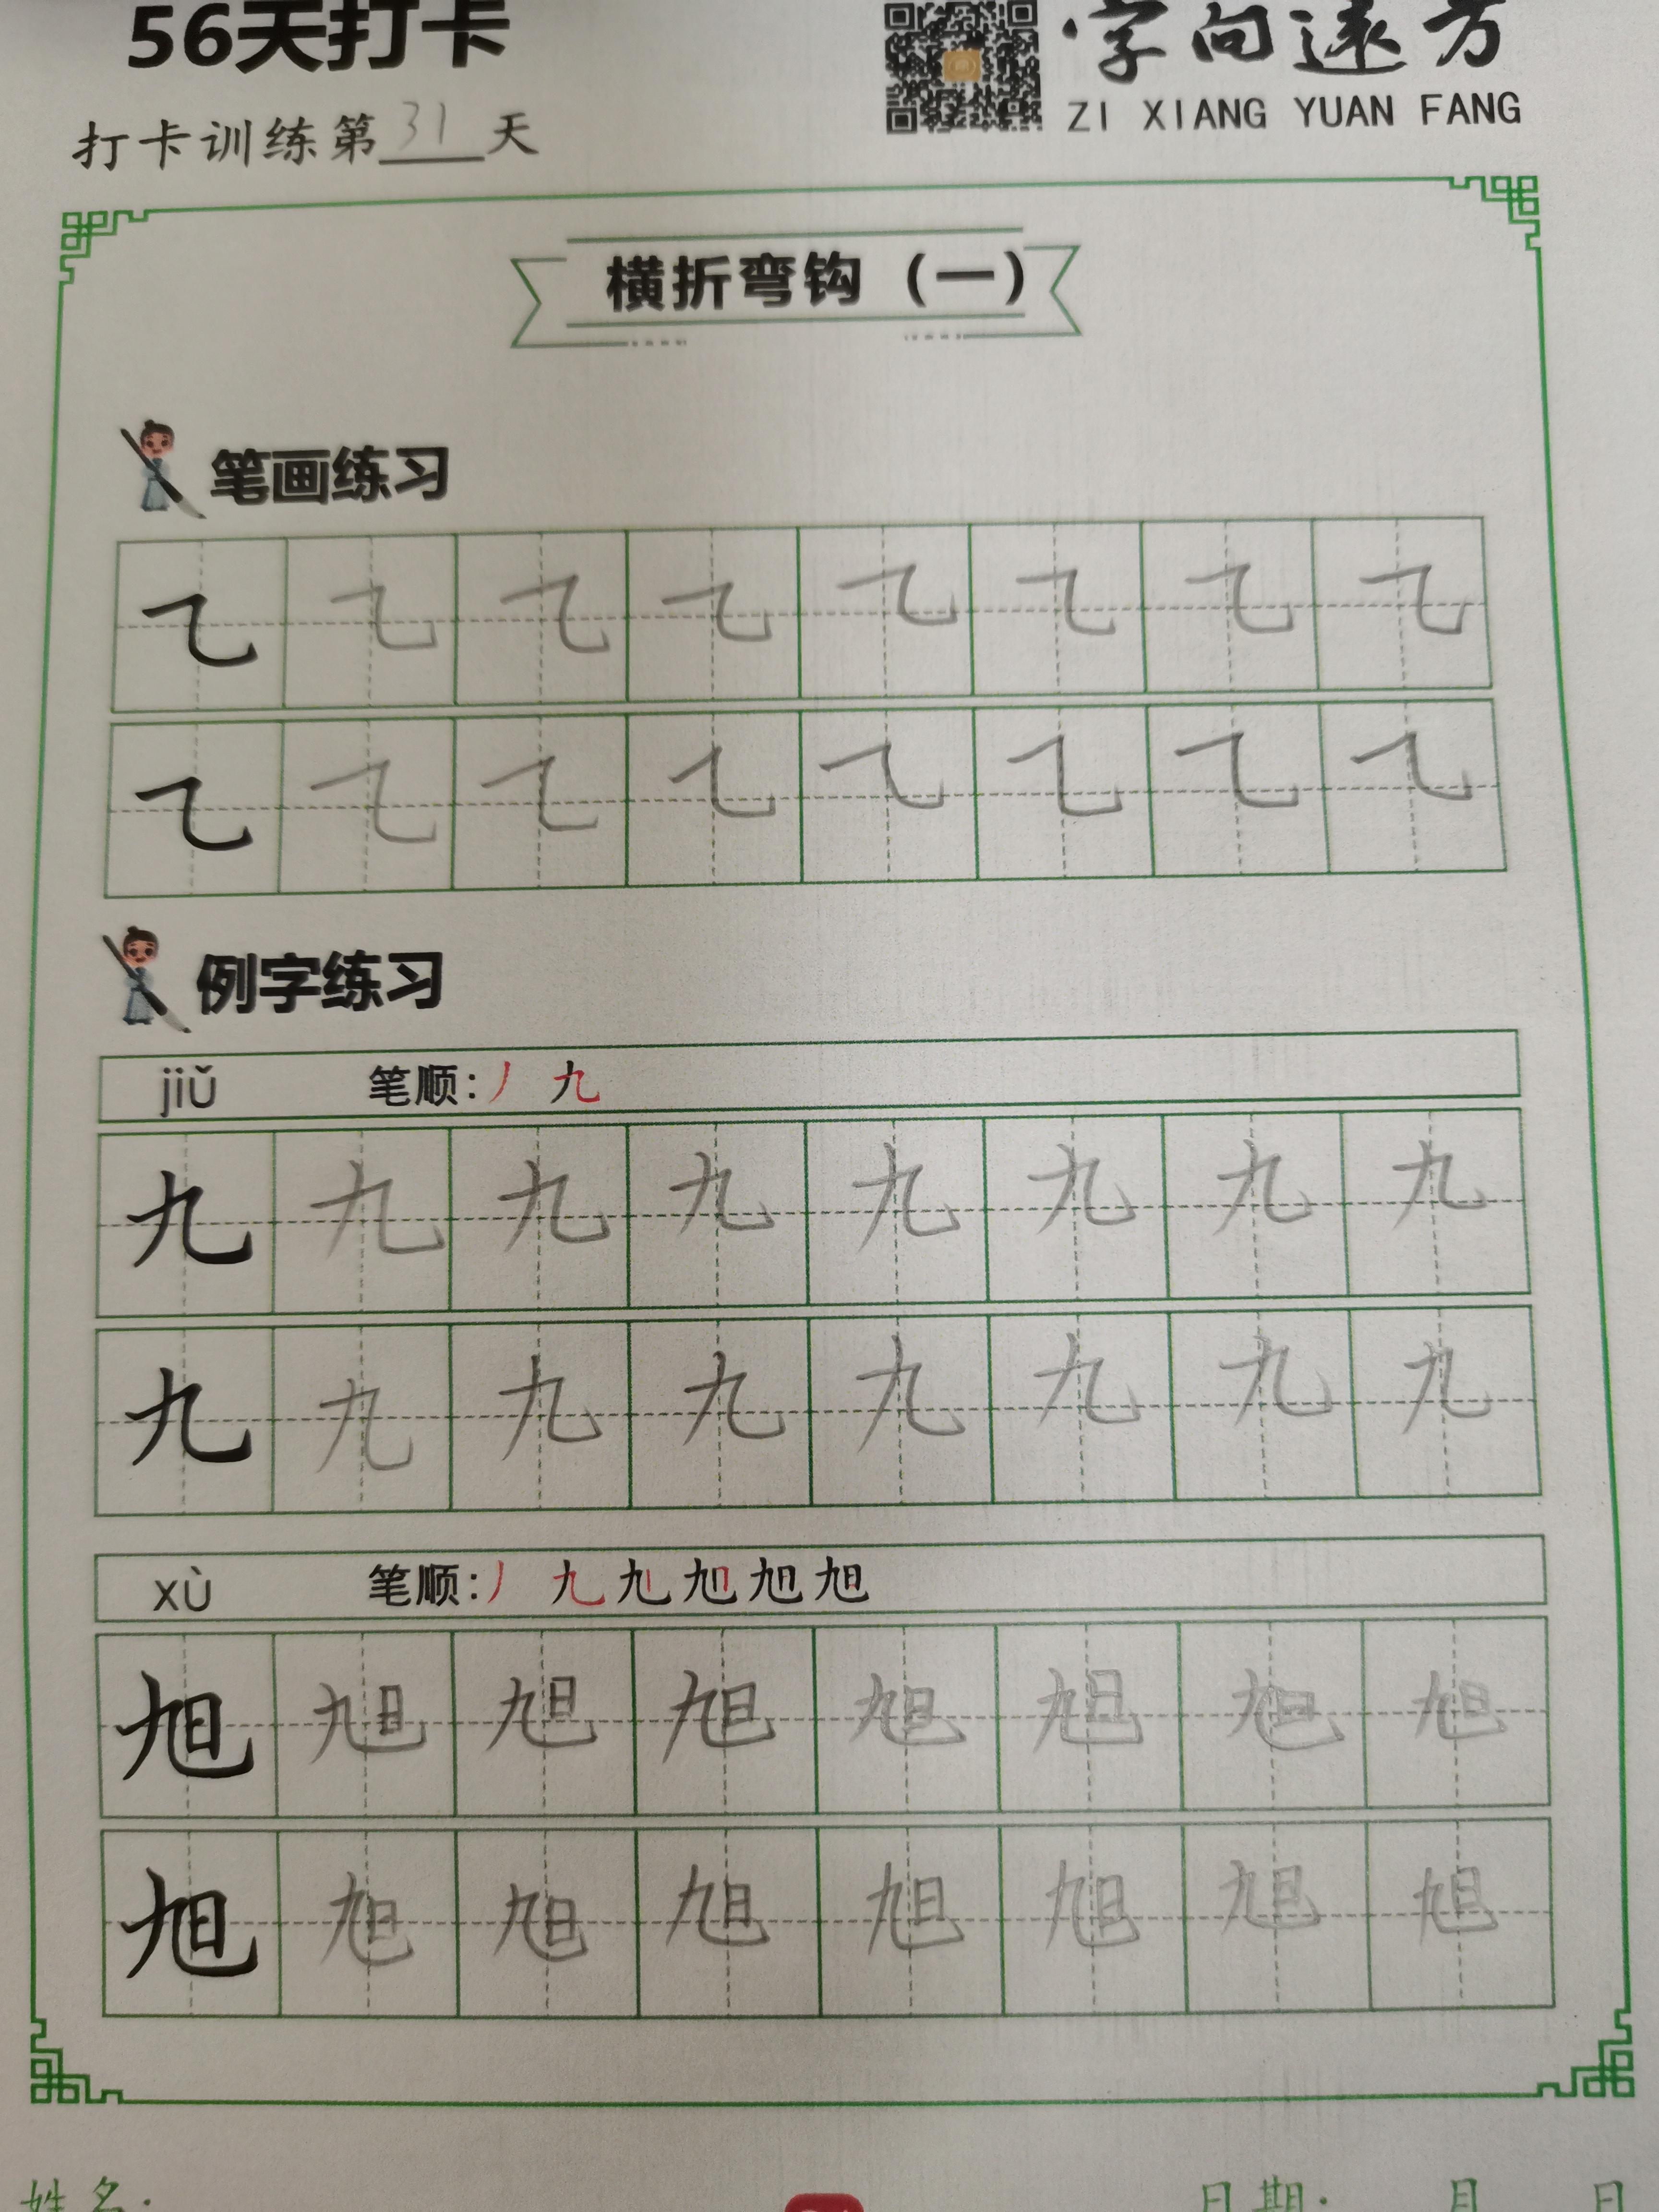 56天打卡
·字向远方
ZI XIANG YUAN FANG
打卡训练第31天
横折弯钩（一）
笔画练习
㇈ ㇈ ㇈ ㇈ ㇈ ㇈ ㇈ ㇈
㇈ ㇈ ㇈ ㇈ ㇈ ㇈ ㇈ ㇈
例字练习
jiǔ 笔顺：丿 九
九 九 九 九 九 九 九 九
九 九 九 九 九 九 九 九
xù 笔顺：丿 九
旭
旭 旭 旭 旭 旭 旭 旭 旭
旭 旭 旭 旭 旭 旭 旭 旭
姓名：
日期： 月 日